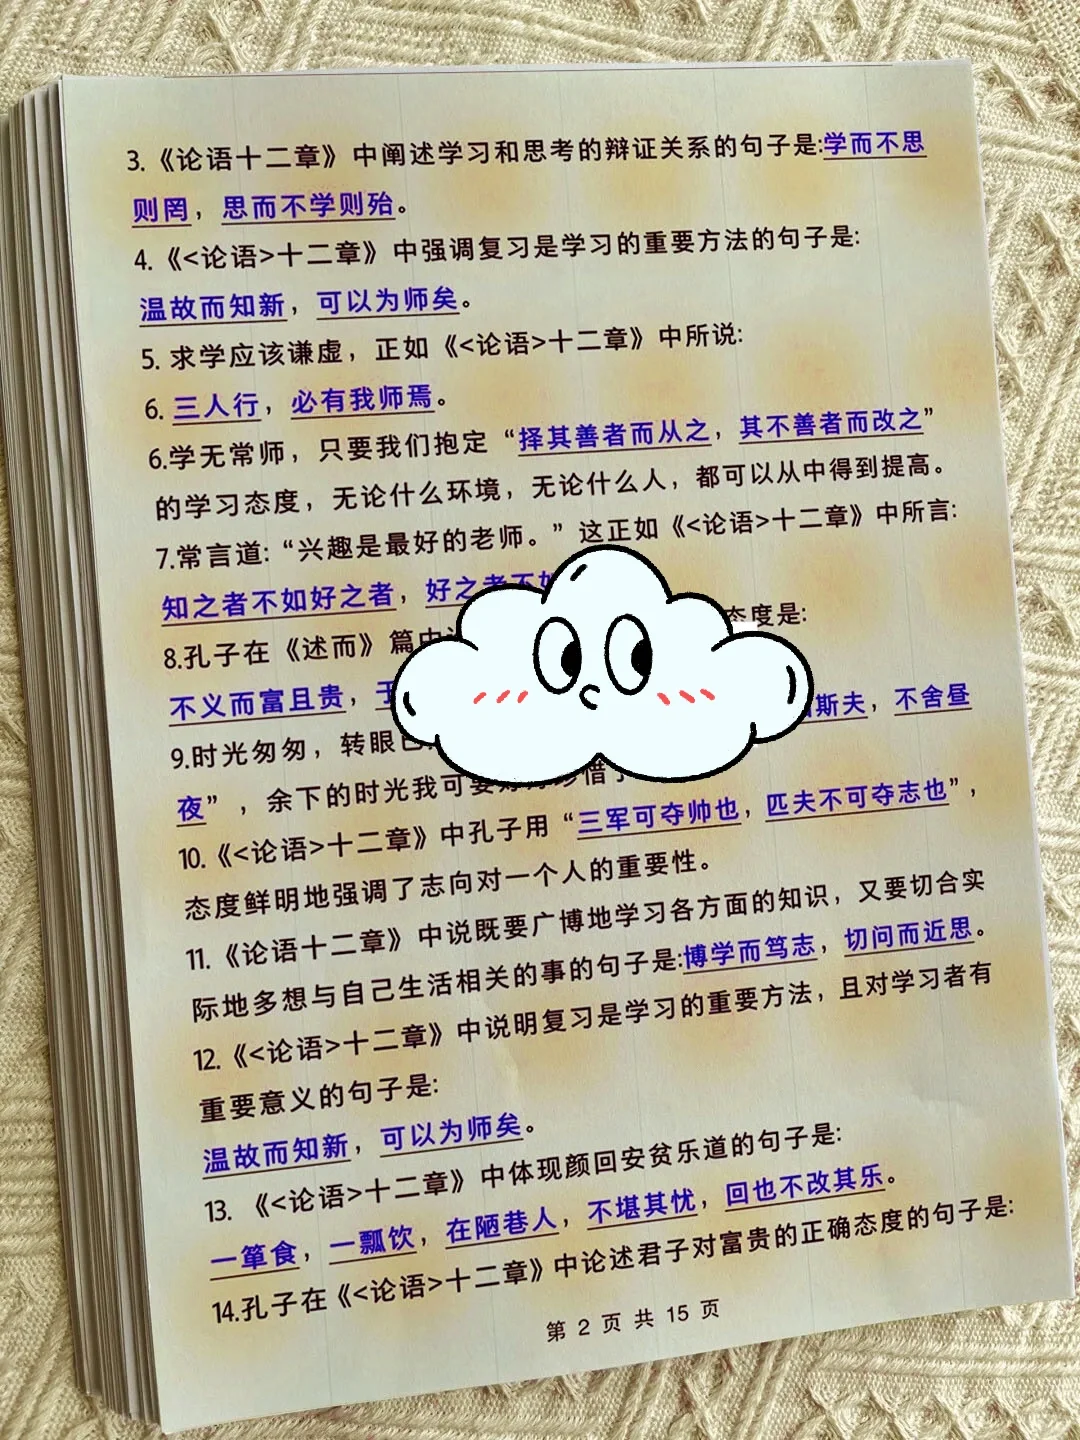 3.《论语十二章》中阐述学习和思考的辩证关系的句子是:学而不思
则罔，思而不学则殆。
4.《<论语>十二章》中强调复习是学习的重要方法的句子是:
温故而知新，可以为师矣。
5. 求学应该谦虚，正如《<论语>十二章》中所说:
6. 三人行，必有我师焉。
6.学无常师，只要我们抱定“择其善者而从之，其不善者而改之”
的学习态度，无论什么环境，无论什么人，都可以从中得到提高。
7.常言道:“兴趣是最好的老师。”这正如《<论语>十二章》中所言:
知之者不如好之者，好之者不
8.孔子在《述而》篇中 态度是:
不义而富且贵，于 斯夫，不舍昼
9.时光匆匆，转眼
夜”，余下的时光我可要 惜
10.《<论语>十二章》中孔子用“三军可夺帅也，匹夫不可夺志也”，
态度鲜明地强调了志向对一个人的重要性。
11.《论语十二章》中说既要广博地学习各方面的知识，又要切合实
际地多想与自己生活相关的事的句子是:博学而笃志，切问而近思。
12.《<论语>十二章》中说明复习是学习的重要方法，且对学习者有
重要意义的句子是:
温故而知新，可以为师矣。
13. 《<论语>十二章》中体现颜回安贫乐道的句子是:
一箪食，一瓢饮，在陋巷人，不堪其忧，回也不改其乐。
14.孔子在《<论语>十二章》中论述君子对富贵的正确态度的句子是:
第 2 页 共 15 页